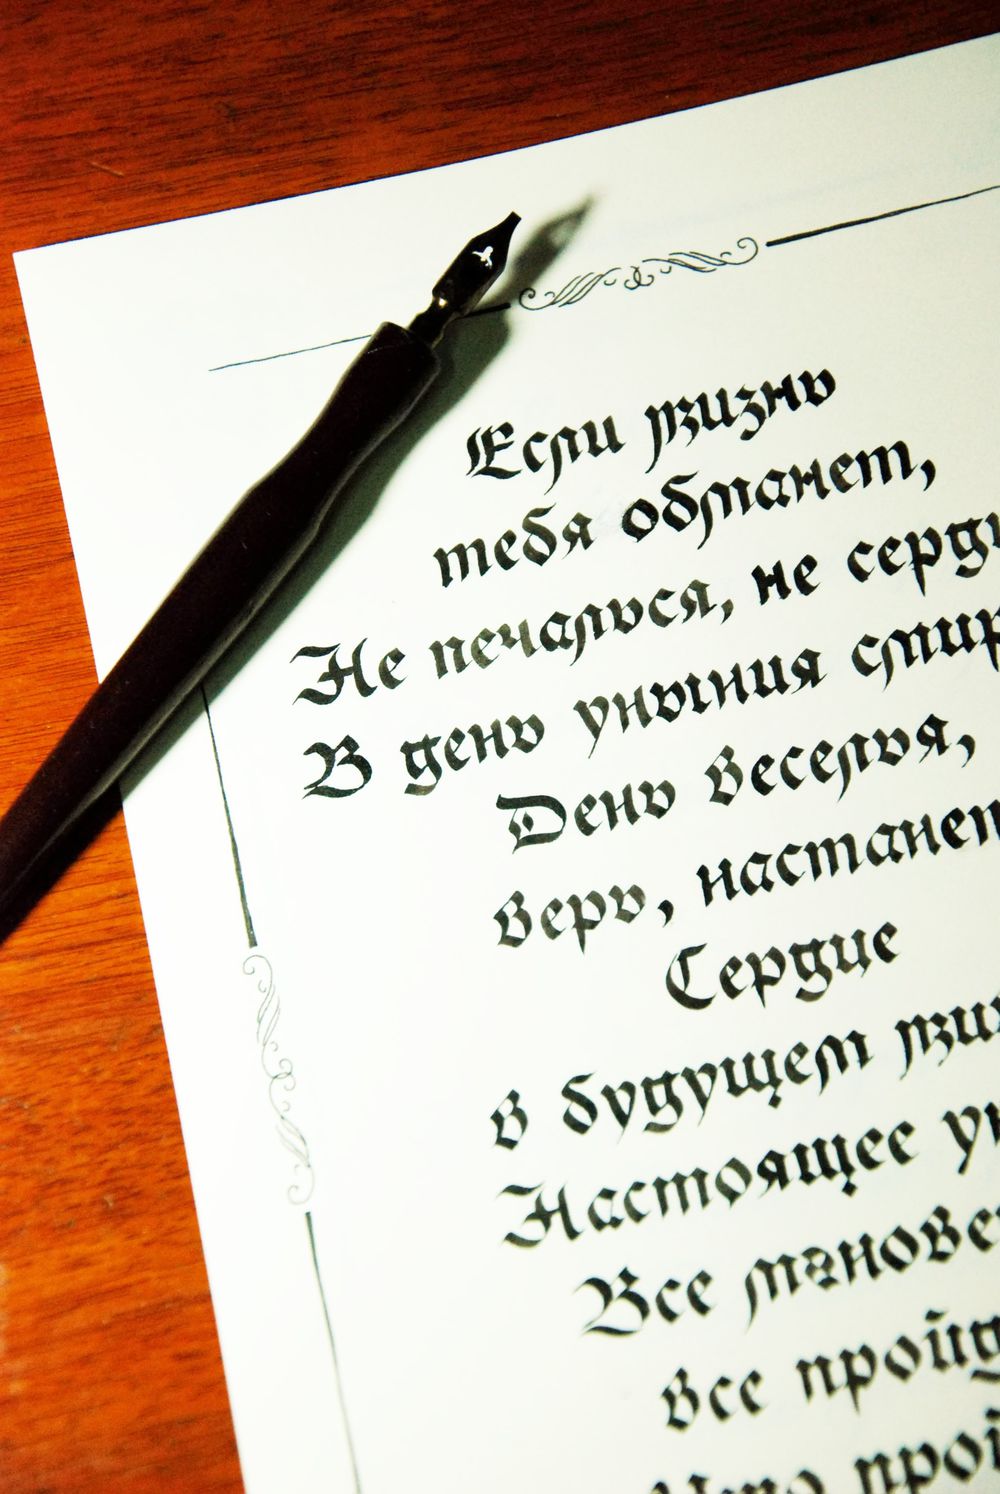 Если жизнь
тебя обманет,
Не печалься, не серди
В день уныния смир
День веселья,
верь, настанет
Сердце
в будущем жив
Настоящее ун
Все мгнове
все пройд
Что прой